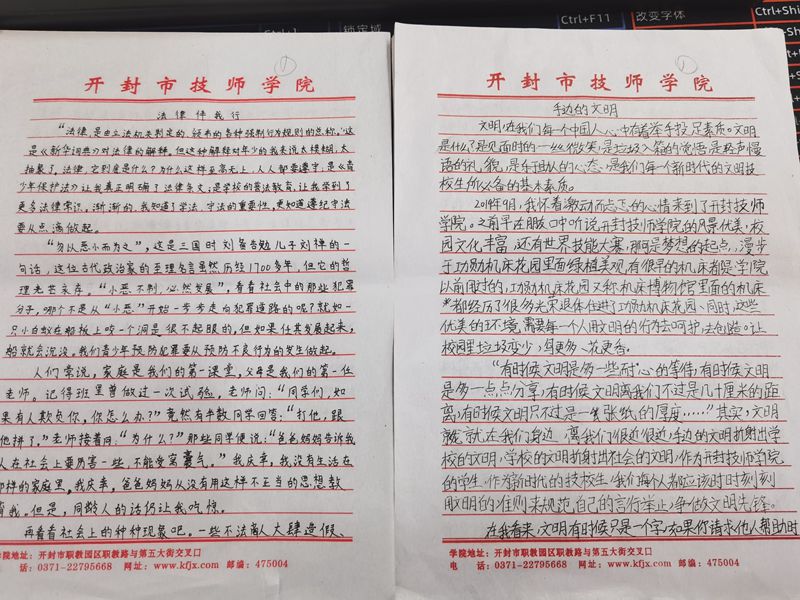 锁定域
Ctrl+F11
改变字体
Ctrl+Shi
开封市技师学院
法律伴我行
“法律,是由立法机关制定的,颁布的各种强制行为规则的总称。”这
是《新华词典》对法律的解释。但这种解释对年少的我来说太模糊,太
抽象了。法律,它到底是什么?为什么这样至高无上,人人都要遵守,是《青
少年保护法》让我真正明确了法律条文;是学校的普法教育,让我学到了
更多法律常识。渐渐的,我知道了学法、守法的重要性,更知道遵纪守法
要从点滴做起。
“勿以恶小而为之”,这是三国时刘备告勉儿子刘禅的一
句话,这位古代政治家的至理名言虽然历经1700多年,但它的哲
理光芒永存。“小恶不制,必然发展”,看看社会中的那些犯罪
分子,哪个不是从“小恶”开始一步步走向犯罪道路的呢?就如一
只小白蚁在船板上咬一个洞是很不起眼的,但如果任其发展起来,
船就会沉没。我们青少年预防犯罪要从预防不良行为的发生做起。
人们常说,家庭是我们的第一课堂,父母是我们的第一任
老师。记得班里曾做过一次试验,老师问:“同学们,如
果有人欺负你,你怎么办?”竟然有半数同学回答:“打他,跟
他拼了。”老师接着问:“为什么?”那些同学便说:“爸爸妈妈告诉我
人在社会上要厉害一些,不能受窝囊气。”我庆幸,我没有生活在
那样的家庭里,我庆幸,爸爸妈妈从没有用这样不正当的思想教
育我。但是,同龄人的话仍让我吃惊。
再看看社会上的种种现象吧。一些不法商人大肆造假、
学院地址:开封市职教园区职教路与第五大街交叉口
话:0371-22795668 网址:www.kfjx.com 邮编:475004
开封市技师学院
手边的文明
文明,在我们每个中国人心中有着举手投足素质。文明
是什么?是见面时的一丝微笑,是垃圾入箱的觉悟,是轻声慢
语的礼貌,是乐于助人的心态,是我们每一个新时代的文明技
校生所必备的基本素质。
2019年9月,我怀着激动而忐忑的心情来到了开封技师
学院。之前早在朋友口中听说开封技师学院的风景优美,校
园文化丰富,还有世界技能大赛,那间是梦想的起点,漫步
于功勋机床花园里面绿植美观,有很早的机床都是学院
以前用过的,功勋机床花园又称机床博物馆里面的机床
都经历了很多光荣退休住进了功勋机床花园、同时,这些
优美的环境,需要每一个人用文明的行为去呵护,去创造。让
校园里垃圾变少,鸟更多、花更香。
“有时候文明是多一些耐心的等待,有时候文明
是多一点点分享,有时候文明离我们不过是几十厘米的距
离,有时候文明只不过是一张纸的厚度……”其实,文明
就在我们身边,离我们很近很近,手边的文明折射出学
校的文明,学校的文明折射出社会的文明,作为开封技师学院
的学生,作为新时代的技校生,我们每个人都应该时时刻刻
用文明的准则来规范自己的言行举止,争做文明先锋。
在我看来,文明有时候只是一个字,如果你请求他人帮助时
学院地址:开封市职教园区职教路与第五大街交叉口
电 话:0371-22795668 网址:www.kfjx.com 邮编:475004